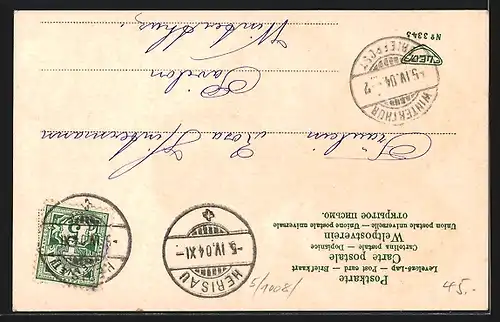 Postkarte
Levelező-Lap — Post card — Briefkaart
Carte postale
Cartolina postale — Dopisnice
Weltpostverein
Union postale universelle — Unione postale universale
ОТКРЫТОЕ ПИСЬМО.
Fräulein Rosa
Pavillon
Winterthur
HERISAU
-5.IV.04.XI-
WINTERTHUR
BRIEFEXP.
-5.IV.04.
Nº 3345
5/1008/
45.-